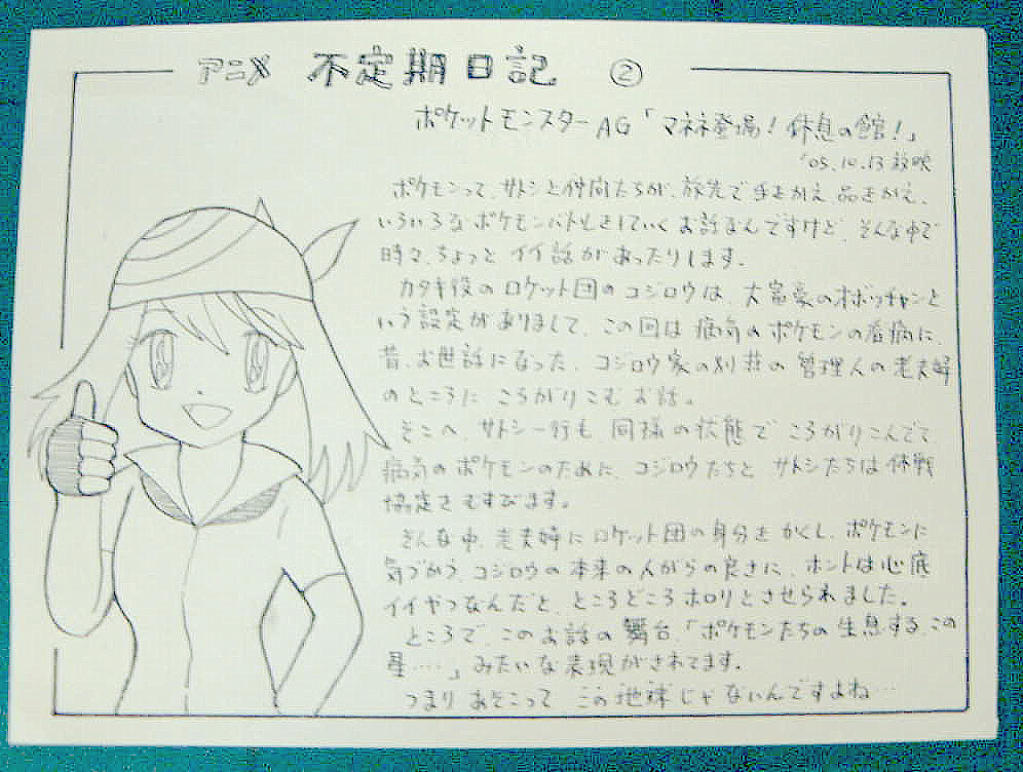 アニメ 不定期日記 ②
ポケットモンスターAG「マネネ登場！休息の館！」
'05.10.13 放映
ポケモンって、サトシと仲間たちが、旅先で手をかえ 品をかえ、
いろいろなポケモンバトルをしていく お話なんですけど、そんな中で
時々、ちょっと イイ話があったりします。
カタキ役の ロケット団の コジロウは、大富豪のオボッチャンと
いう設定がありまして、この回は 病気のポケモンの看病に、
昔、お世話になった、コジロウ家の別荘の 管理人の老夫婦
のところに ころがりこむ お話。
そこへ、サトシ一行も 同様の状態で ころがりこんでて
病気の ポケモンのために、コジロウたちと サトシたちは休戦
協定をむすびます。
そんな中、老夫婦に ロケット団の身分を かくし、ポケモンに
気づかう、コジロウの本来の人がらの良さに、ホントは心底
イイヤツなんだと、ところどころ ホロリとさせられました。
ところで、このお話の 舞台、「ポケモンたちの 生息する、この
星……」みたいな表現がされてます。
つまり あそこって この地球じゃないんですよね…